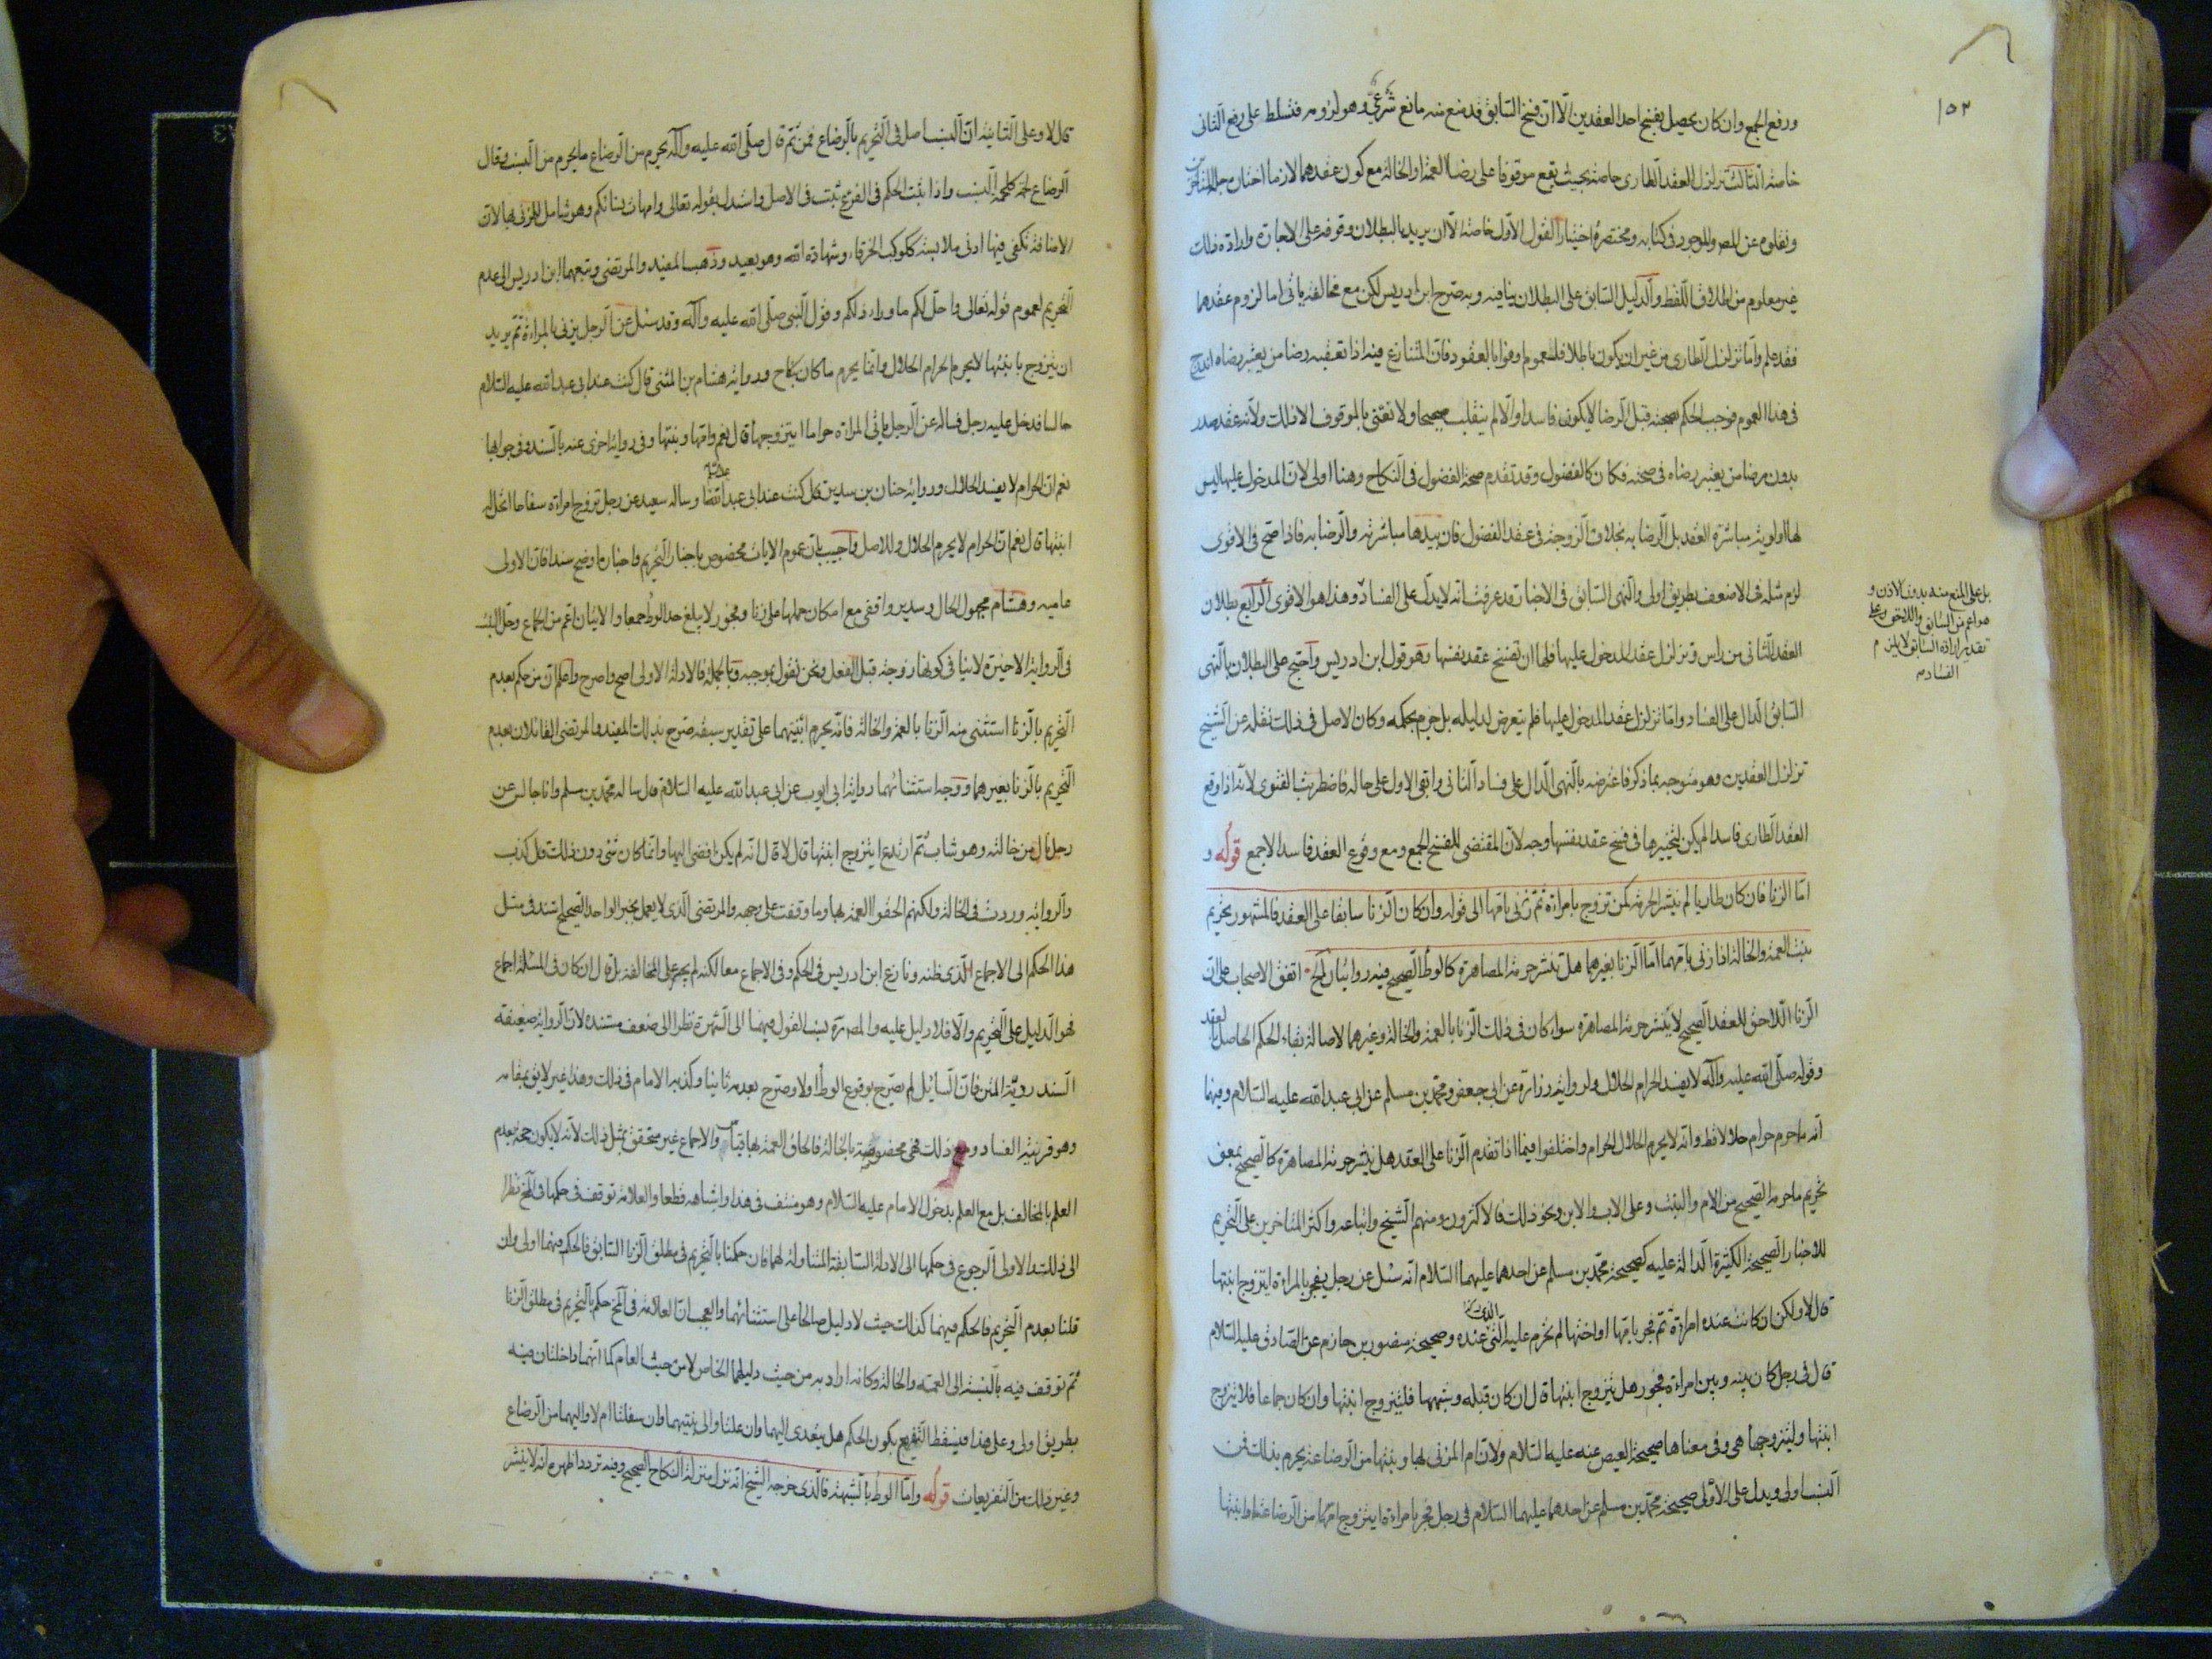 ١٥٢
ورفع الجمع وان كان يحصل بفسخ احد العقدين الا ان فسخ السابق قد منع منه مانع شرعي وهو لزومه فتسلط على رفع الثاني
خاصة الثالث تزلزل العقد الطارى خاصة بحيث يقع موقوفا على رضا العمة او الخالة مع كون عقدهما لازما اختاره جل المتأخرين
ونقلوه عن المص والموجود فى كتابه ومختصره اختيار القول الاول خاصة الا ان يريد بالبطلان وقوفه على الاجازة وارادة ذلك
غير معلوم من اطلاق اللفظ والدليل السابق على البطلان ينافيه وبه صرح ابن ادريس لكن مع مخالفة ياتى اما لزوم عقدهما
فقد علم واما تزلزل الطارى من غير ان يكون باطلا فلعموم اوفوا بالعقود فان المتنازع فيه اذا تعقبه رضا من يعتبر رضاه اندرج
فى هذا العموم فوجب الحكم بصحته قبل الرضا لا يكون فاسدا والا لم ينقلب صحيحا ولا نعنى بالموقوف الا ذلك ولانه عقد صدر
بدون رضا من يعتبر رضاه فى صحته فكان كالفضول وقد تقدم صحة الفضول فى النكاح وهنا اولى لان المدخول عليها ليس
لها اولوية مباشرة العقد بل الرضا به بخلاف الزوجة فى عقد الفضول فان بيدها مباشرته والرضا به فاذا صح فى الاقوى
لزم مثله فى الاضعف بطريق اولى والنهى السابق فى الاخبار قد عرفت انه لا يدل على الفساد وهذا هو الاقوى الرابع بطلان
العقد الثانى من راس وتزلزل عقد المدخول عليها فلها ان تفسخ عقد نفسها وهو قول ابن ادريس واحتج على البطلان بالنهى
السابق الدال على الفساد واما تزلزل عقد المدخول عليها فلم يتعرض لدليله بل جزم بحكمه وكان الاصل فى ذلك نقله عن الشيخ
تزلزل العقدين وهو متوجه بما ذكر فاعترضه بالنهى الدال على فساد الثانى وابقى الاول على حاله فاضطربت الفتوى لانه اذا وقع
العقد الطارى فاسدا لم يكن لتخييرها فى فسخ عقد نفسها وجه لان المقتضى للفسخ الجمع ومع وقوع العقد فاسدا لا جمع قوله و
اما الزنا فان كان طاريا لم ينشر الحرمة كمن تزوج بامراة ثم زنى بامها الى قوله وان كان الزنا سابقا على العقد فالمشهور تحريم
بنت العمة والخالة اذا زنى بامهما اما الزنا بغيرهما هل تنشر حرمة المصاهرة كالوطئ الصحيح فيه روايتان الخ اتفق الاصحاب على ان
الزنا اللاحق للعقد الصحيح لا ينشر حرمة المصاهرة سواء كان فى ذلك الزنا بالعمة والخالة وغيرهما لاصالة بقاء الحكم الحاصل بالعقد
وقوله صلى الله عليه وآله لا يفسد الحرام الحلال ولرواية زرارة عن ابى جعفر ومحمد بن مسلم عن ابى عبدالله عليه السلام وفيها
انه ما حرم حرام حلالا قط وانه لا يحرم الحلال الحرام واختلفوا فيما اذا تقدم الزنا على العقد هل ينشر حرمة المصاهرة كالصحيح بمعنى
تحريم ما حرمه الصحيح من الام والبنت وعلى الاب والابن ونحو ذلك فالاكثرون ومنهم الشيخ واتباعه واكثر المتاخرين على التحريم
للاخبار الصحيحة الكثيرة الدالة عليه كصحيحة محمد بن مسلم عن احدهما عليهما السلام انه سئل عن رجل يفجر بالمراة ايتزوج ابنتها
قال لا ولكن ان كانت عنده امراة ثم فجر بامها او اختها لم تحرم عليه التى عنده وصحيحة منصور بن حازم عن الصادق عليه السلام
قال فى رجل كان بينه وبين امراة فجور هل يتزوج ابنتها قال ان كان قبلة وشبهها فليتزوج ابنتها وان كان جماعا فلا يتزوج
ابنتها وليتزوجها هى وفى معناها صحيحة العيص عنه عليه السلام ولان ام المزنى بها وبنتها من الرضاعة يحرم بذلك فمن
النسب اولى ويدل على الاولى صحيحة محمد بن مسلم عن احدهما عليهما السلام فى رجل فجر بامراة ايتزوج امها من الرضاعة او ابنتها
بل على المنع منه بدون الاذن و
هو اعم من السابق واللاحق وعلى
تقدير ارادة السابق لا يلزم
الفساد منه
قال لا وعلى الثانية ان النسب اصل فى التحريم بالرضاع فمن ثم قال صلى الله عليه وآله يحرم من الرضاع ما يحرم من النسب وقال
الرضاع لحمة كلحمة النسب واذا ثبت الحكم فى الفرع ثبت فى الاصل واستدل بقوله تعالى وامهات نسائكم وهو شامل للمزنى بها لان
الاضافة تكفى فيها ادنى ملابسة ككوكب الخرقاء وشهادة الله وهو بعيد وذهب المفيد والمرتضى وتبعهما ابن ادريس الى عدم
التحريم لعموم قوله تعالى واحل لكم ما وراء ذلكم وقول النبى صلى الله عليه وآله وقد سئل عن الرجل يزنى بالمراءة ثم يريد
ان يتزوج بابنتها لا يحرم الحرام الحلال وانما يحرم ما كان بنكاح ورواية هشام بن المثنى قال كنت عند ابى عبدالله عليه السلام
جالسا فدخل عليه رجل فساله عن الرجل ياتى المراة حراما ايتزوجها قال نعم وامها وبنتها وفى رواية اخرى عنه بالسند وفى جوابها
نعم ان الحرام لا يفسد الحلال ورواية حنان بن سدير قال كنت عند ابى عبدالله وساله سعيد عن رجل تزوج امراة سفاحا اتحل له
ابنتها قال نعم ان الحرام لا يحرم الحلال وللاصل واجيب بان عموم الايات مخصوص باخبار التحريم واخباره اوضح سندا فان الاولى
عامية وهشام مجهول الحال وسدير واقفى مع امكان حملها على زنا وفجور لا يبلغ حد الوطئ جمعا والاتيان اعم من الجماع وحل البنت
فى الرواية الاخيرة لا ينافى كونها زوجة قبل الفعل ونحن نقول بموجبه وبالجملة فالادلة الاولى اصح واصرح واعلم ان من حكم بعدم
التحريم بالزنا استثنى منه الزنا بالعمة والخالة فانه يحرم ابنتيهما على تقدير سبقه صرح بذلك المفيد والمرتضى القائلان بعدم
التحريم بالزنا بغيرهما ووجه استثنائهما رواية ابى ايوب عن ابى عبدالله عليه السلام قال ساله محمد بن مسلم وانا جالس عن
رجل نال من خالته وهو شاب ثم ارتدع ايتزوج ابنتها قال لا قال انه لم يكن افضى اليها وانما كان شئ دون ذلك قال كذب
والرواية وردت فى الخالة ولكنهم الحقوا العمة بها وما وقفت على وجهه والمرتضى الذى لا يعمل بخبر الواحد الصحيح استند فى مثل
هذا الحكم الى الاجماع الذى ظنه ونازع ابن ادريس فى الحكم وفى الاجماع معا لكنه لم يجترء على المخالفة بل قال ان كان فى المسئلة اجماع
فهو الدليل على التحريم والا فلا دليل عليه والمصره نسب القول فيهما الى الشهرة نظرا الى ضعف مستنده لان الرواية ضعيفة
السند ردية المتن فان السائل لم يصرح بوقوع الوطئ اولا وصرح بعدمه ثانيا وكذبه الامام فى ذلك وهذا غير لايق بمقامه
وهو قرينة الفساد ومع ذلك هى مخصوصة بالخالة فالحاق العمة بها قياس والاجماع غير متحقق بمثل ذلك لانه لا يكون حجة بعدم
العلم بالمخالف بل مع العلم بدخول الامام عليه السلام وهو منتف فى هذا واشباهه قطعا والعلامة توقف فى حكمها فى المخ نظرا
الى ذلك والاولى الرجوع فى حكمها الى الادلة السابقة المتناولة لهما فان حكمنا بالتحريم فى مطلق الزنا السابق فالحكم فيهما اولى وان
قلنا بعدم التحريم فالحكم فيهما كذلك حيث لا دليل صالحا على استثنائهما والعجب ان العلامة فى المخ حكم بالتحريم فى مطلق الزنا
ثم توقف فيه بالنسبة الى العمة والخالة وكانه اراد به من حيث دليلهما الخاص لا من حيث العام كما انهما داخلتان فيه
بطريق اولى وعلى هذا فيسقط التفريع بكون الحكم هل يتعدى اليهما وان علتا والى بنتيهما وان سفلتا ام لا واليهما من الرضاع
وغير ذلك من التفريعات قوله واما الوطئ بالشبهة فالذى خرجه الشيخ انه نزل منزلة النكاح الصحيح وفيه تردد اظهره انه لا ينشر